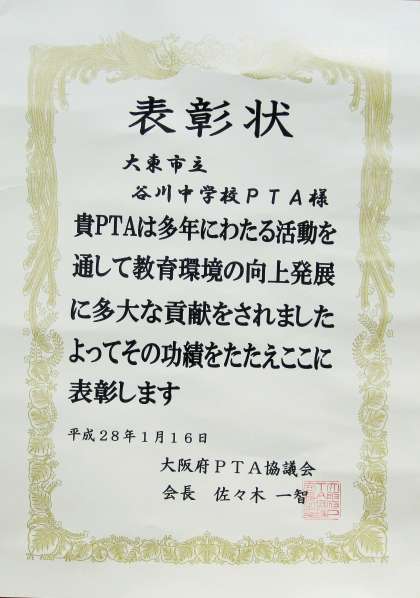 表彰状
大東市立
谷川中学校PTA様
貴PTAは多年にわたる活動を
通して教育環境の向上発展
に多大な貢献をされました
よってその功績をたたえここに
表彰します
平成28年1月16日
大阪府PTA協議会
会長 佐々木 一智